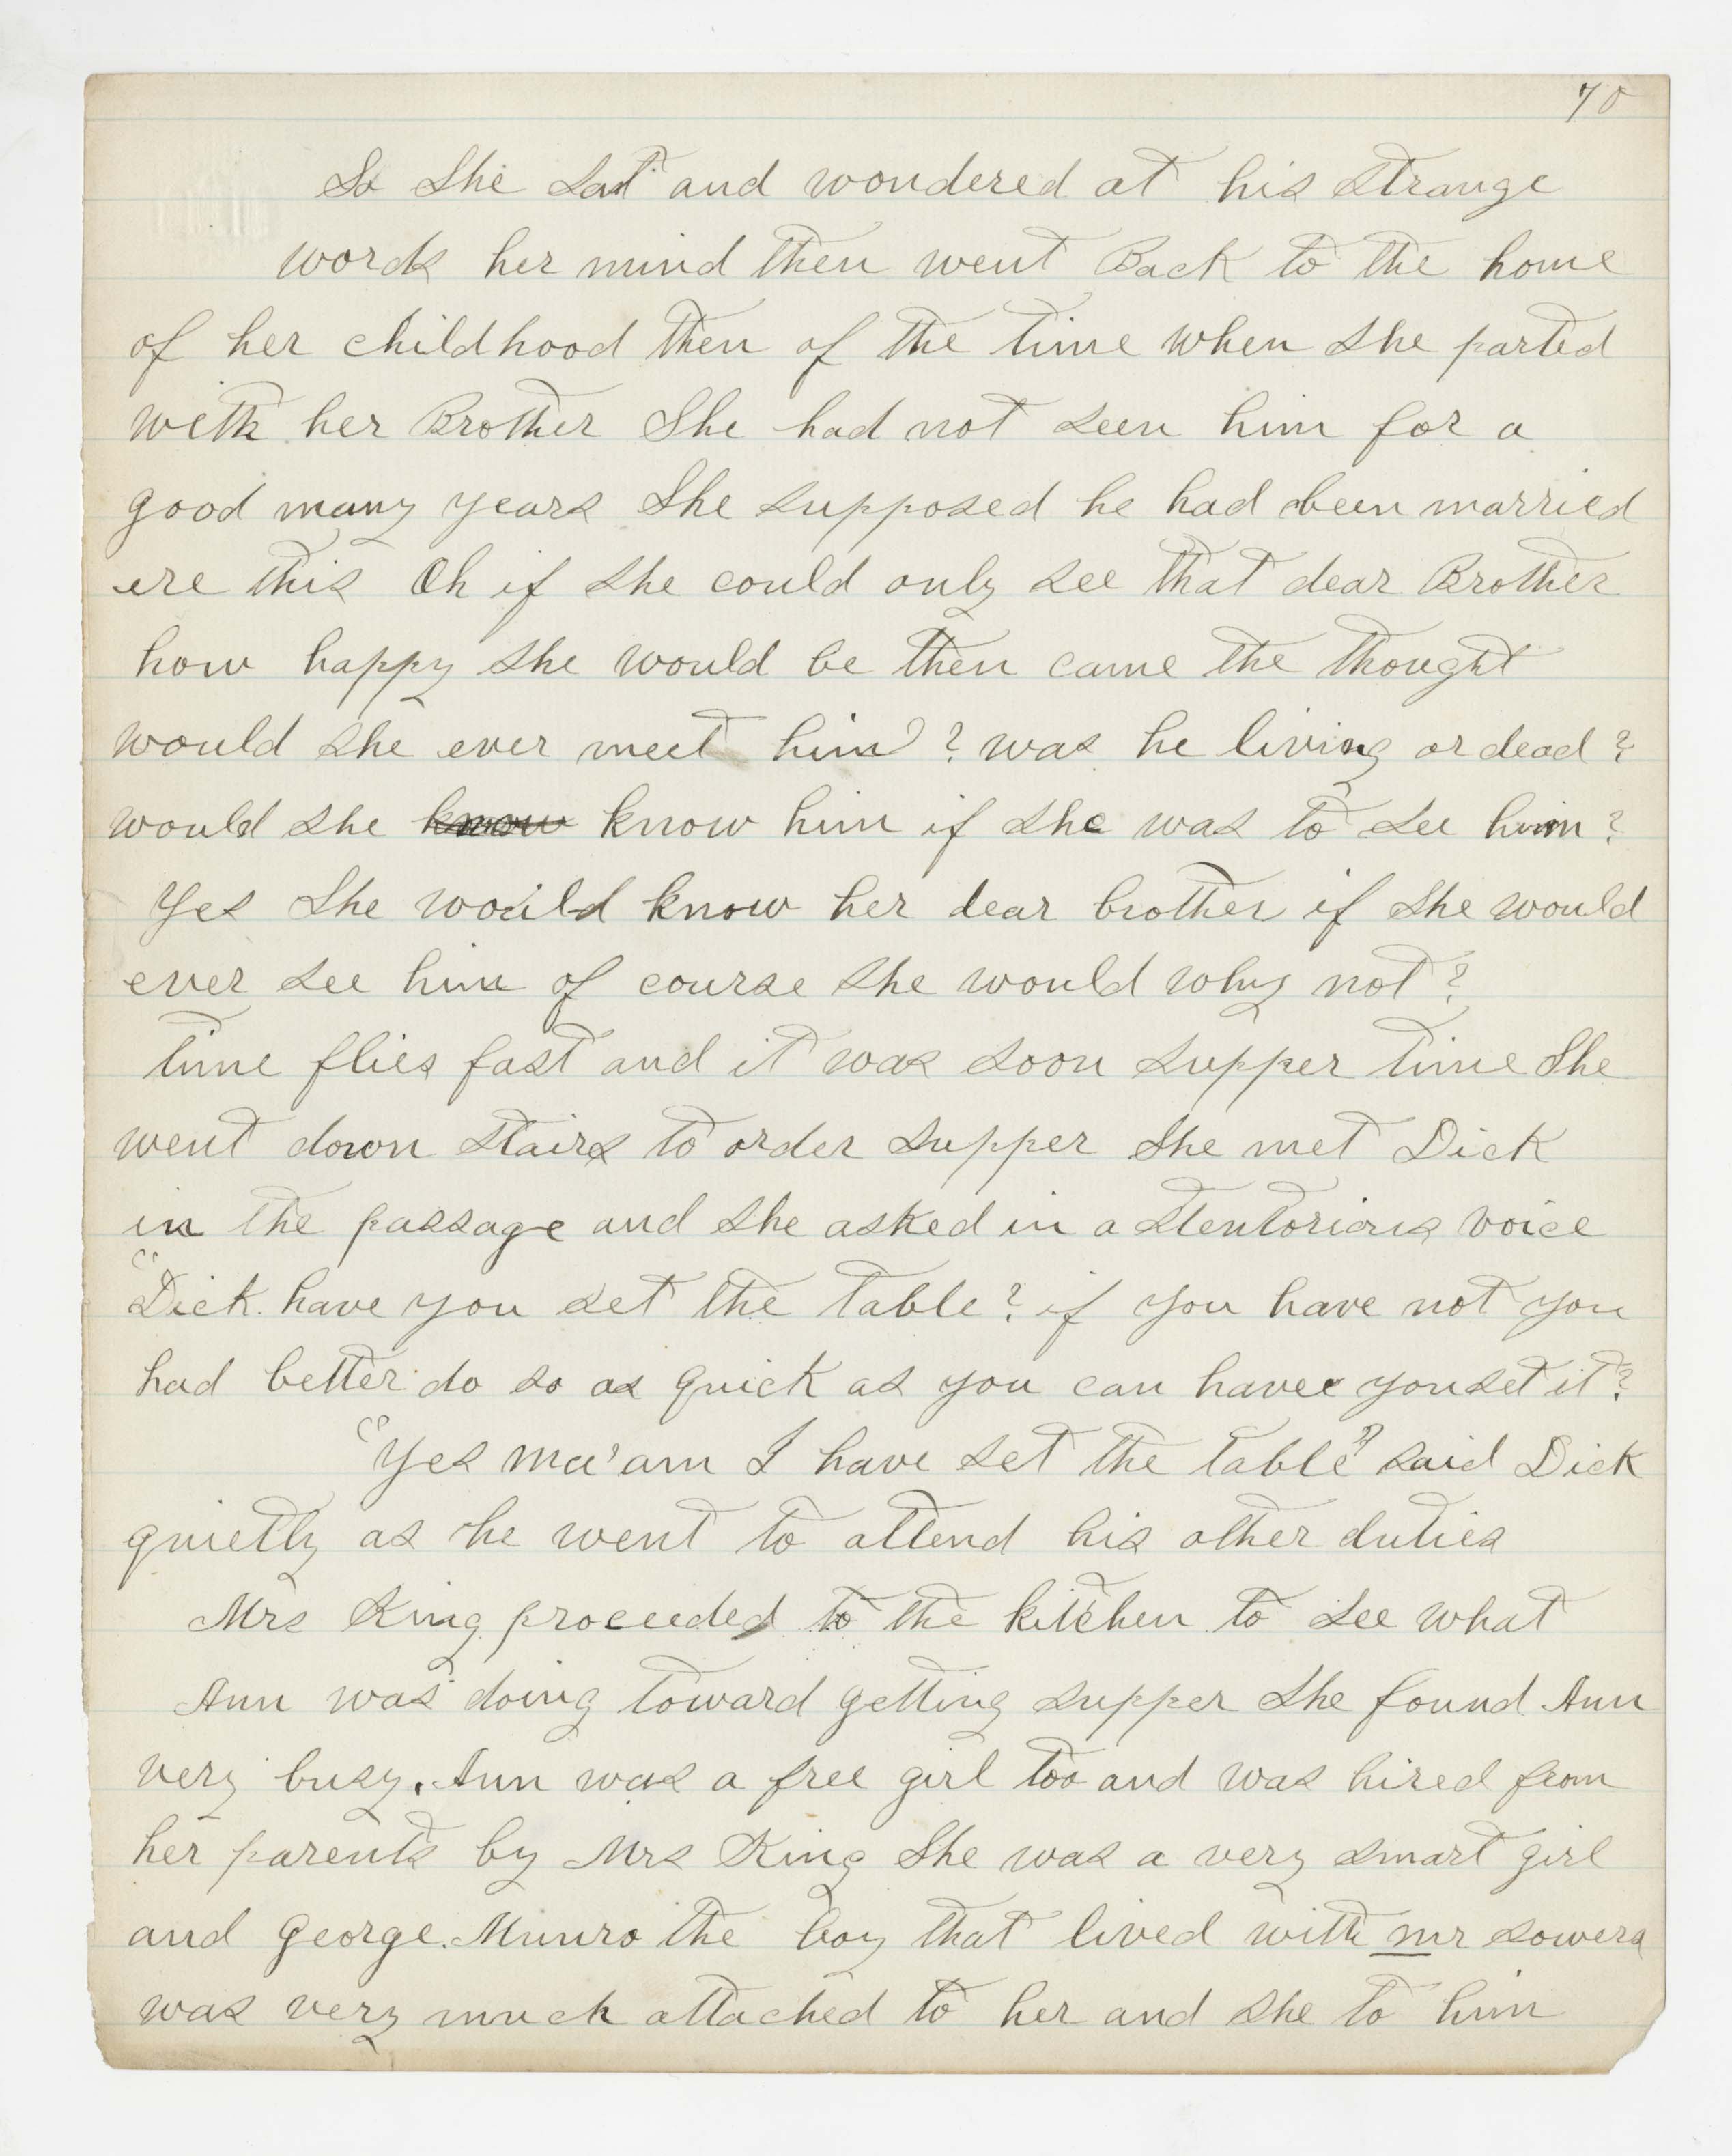 70
So She Sat and wondered at his strange
words her mind then went Back to the home
of her childhood then of the time when she parted
with her Brother She had not seen him for a
good many years She supposed he had been married
ere this Oh if she could only see that dear Brother
how happy she would be then came the thought
would she ever meet him? was he living or dead?
would she know know him if she was to see him?
Yes She would know her dear brother if she would
ever see him of course she would why not?
time flies fast and it was soon supper time She
went down stairs to order supper She met Dick
in the passage and she asked in a stentorious voice
"Dick have you set the table? if you have not you
had better do so as quick as you can have you set it?
"Yes ma'am I have set the table" said Dick
quietly as he went to attend his other duties
Mrs King proceeded to the kitchen to see what
Ann was doing toward getting supper she found Ann
very busy. Ann was a free girl too and was hired from
her parents by Mrs King She was a very smart girl
and George Munro the boy that lived with mr sowers
was very much attached to her and she to him